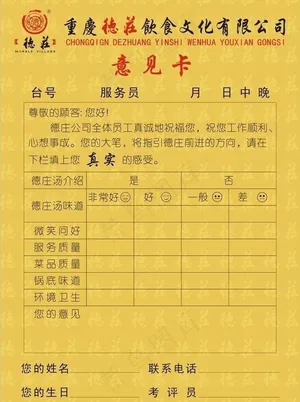 德莊
MORALS VILLAGE
重慶德莊飲食文化有限公司
CHONGQIGN DEZHUANG YINSHI WENHUA YOUXIAN GONGSI
意见卡
台号 服务员 月 日 中 晚
尊敬的顾客:您好!
德庄公司全体员工真诚地祝福您，祝您工作顺利、
心想事成。您的大笔，将指引德庄前进的方向，请在
下栏填上您 真实 的感受。
德庄汤介绍 是 否
德庄汤味道 非常好 好 一般 差
微笑问好
服务质量
菜品质量
锅底味道
环境卫生
您的意见
您的姓名 联系电话
您的生日 考评员